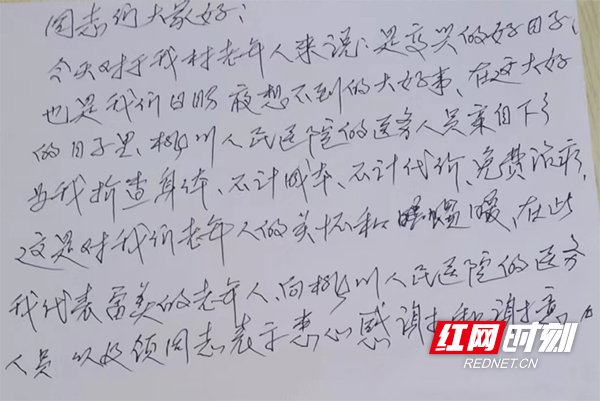 同志们大家好：
今天对于我村老年人来说：是高兴的好日子，
也是我们日盼夜想不到的大好事、在这大好
的日子里、桃川人民医院的医务人员亲自下乡
为我检查身体、不计成本、不计代价、免费治疗，
这是对我们老年人的关怀和温暖、在此
我代表富美的老年人、向桃川人民医院的医务
人员以及领同志表示衷心感谢和谢意
红网时刻
REDNET.CN